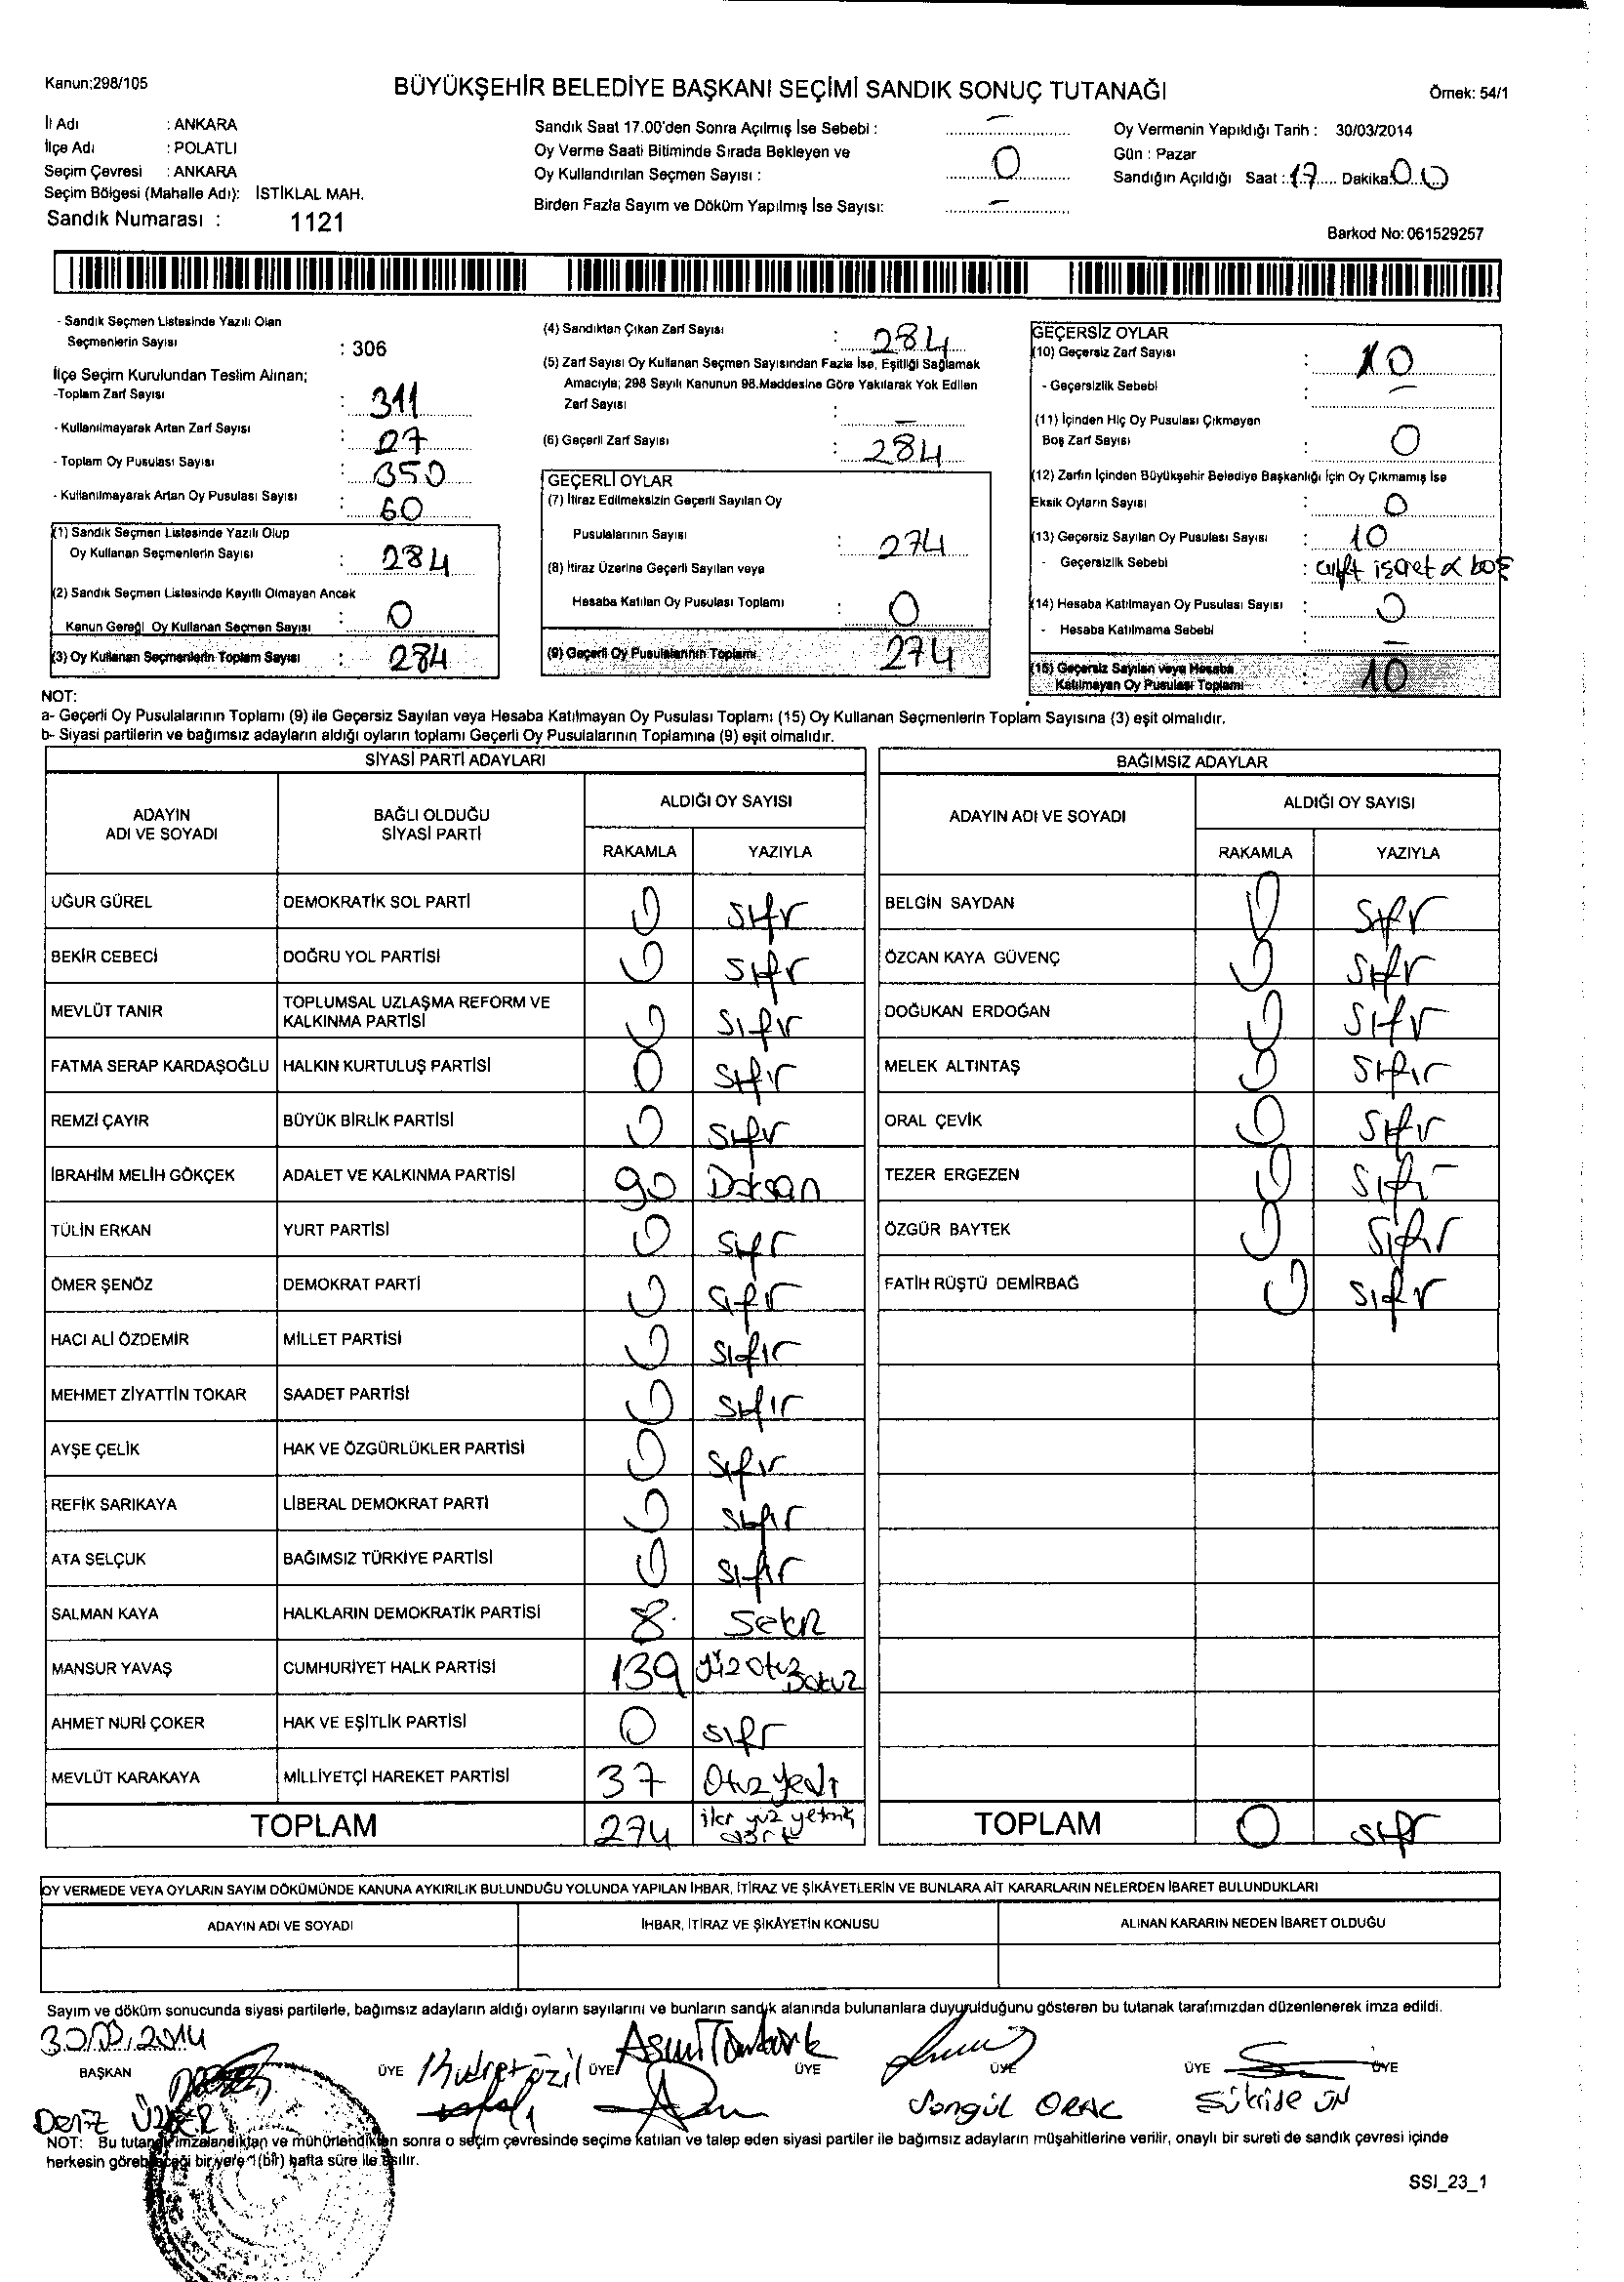 Kanun:298/105
BÜYÜKŞEHİR BELEDİYE BAŞKANI SEÇİMİ SANDIK SONUÇ TUTANAĞI
Örnek: 54/1
İl Adı : ANKARA
İlçe Adı : POLATLI
Seçim Çevresi : ANKARA
Seçim Bölgesi (Mahalle Adı): İSTİKLAL MAH.
Sandık Numarası : 1121
Sandık Saat 17.00'den Sonra Açılmış İse Sebebi : –
Oy Verme Saati Bitiminde Sırada Bekleyen ve
Oy Kullandırılan Seçmen Sayısı : 0
Birden Fazla Sayım ve Döküm Yapılmış İse Sayısı: –
Oy Vermenin Yapıldığı Tarih : 30/03/2014
Gün : Pazar
Sandığın Açıldığı Saat : 17 Dakika: 00
Barkod No: 061529257
- Sandık Seçmen Listesinde Yazılı Olan
Seçmenlerin Sayısı : 306
İlçe Seçim Kurulundan Teslim Alınan;
-Toplam Zarf Sayısı : 311
- Kullanılmayarak Artan Zarf Sayısı : 27
- Toplam Oy Pusulası Sayısı : 350
- Kullanılmayarak Artan Oy Pusulası Sayısı : 60
(1) Sandık Seçmen Listesinde Yazılı Olup
Oy Kullanan Seçmenlerin Sayısı : 284
(2) Sandık Seçmen Listesinde Kayıtlı Olmayan Ancak
Kanun Gereği Oy Kullanan Seçmen Sayısı : 0
(3) Oy Kullanan Seçmenlerin Toplam Sayısı : 284
(4) Sandıktan Çıkan Zarf Sayısı : 284
(5) Zarf Sayısı Oy Kullanan Seçmen Sayısından Fazla İse, Eşitliği Sağlamak
Amacıyla; 298 Sayılı Kanunun 98.Maddesine Göre Yakılarak Yok Edilen
Zarf Sayısı : –
(6) Geçerli Zarf Sayısı : 284
GEÇERLİ OYLAR
(7) İtiraz Edilmeksizin Geçerli Sayılan Oy
Pusulalarının Sayısı : 274
(8) İtiraz Üzerine Geçerli Sayılan veya
Hesaba Katılan Oy Pusulası Toplamı : 0
(9) Geçerli Oy Pusulalarının Toplamı 274
GEÇERSİZ OYLAR
(10) Geçersiz Zarf Sayısı : 0
- Geçersizlik Sebebi : –
(11) İçinden Hiç Oy Pusulası Çıkmayan
Boş Zarf Sayısı : 0
(12) Zarfın İçinden Büyükşehir Belediye Başkanlığı İçin Oy Çıkmamış İse
Eksik Oyların Sayısı 0
(13) Geçersiz Sayılan Oy Pusulası Sayısı : 10
- Geçersizlik Sebebi : çift işaret boş
(14) Hesaba Katılmayan Oy Pusulası Sayısı : 0
- Hesaba Katılmama Sebebi : –
(15) Geçersiz Sayılan veya Hesaba
Katılmayan Oy Pusulası Toplamı : 10
NOT:
a- Geçerli Oy Pusulalarının Toplamı (9) ile Geçersiz Sayılan veya Hesaba Katılmayan Oy Pusulası Toplamı (15) Oy Kullanan Seçmenlerin Toplam Sayısına (3) eşit olmalıdır.
b- Siyasi partilerin ve bağımsız adayların aldığı oyların toplamı Geçerli Oy Pusulalarının Toplamına (9) eşit olmalıdır.
SİYASİ PARTİ ADAYLARI
ADAYIN ADI VE SOYADI BAĞLI OLDUĞU SİYASİ PARTİ ALDIĞI OY SAYISI
RAKAMLA YAZIYLA
UĞUR GÜREL DEMOKRATİK SOL PARTİ 0 sıfır
BEKİR CEBECİ DOĞRU YOL PARTİSİ 0 sıfır
MEVLÜT TANIR TOPLUMSAL UZLAŞMA REFORM VE KALKINMA PARTİSİ 0 sıfır
FATMA SERAP KARDAŞOĞLU HALKIN KURTULUŞ PARTİSİ 0 sıfır
REMZİ ÇAYIR BÜYÜK BİRLİK PARTİSİ 0 sıfır
İBRAHİM MELİH GÖKÇEK ADALET VE KALKINMA PARTİSİ 90 Doksan
TÜLİN ERKAN YURT PARTİSİ 0 sıfır
ÖMER ŞENÖZ DEMOKRAT PARTİ 0 sıfır
HACI ALİ ÖZDEMİR MİLLET PARTİSİ 0 sıfır
MEHMET ZİYATTİN TOKAR SAADET PARTİSİ 0 sıfır
AYŞE ÇELİK HAK VE ÖZGÜRLÜKLER PARTİSİ 0 sıfır
REFİK SARIKAYA LİBERAL DEMOKRAT PARTİ 0 sıfır
ATA SELÇUK BAĞIMSIZ TÜRKİYE PARTİSİ 0 sıfır
SALMAN KAYA HALKLARIN DEMOKRATİK PARTİSİ 8 Sekiz
MANSUR YAVAŞ CUMHURİYET HALK PARTİSİ 139 yüz otuz Dokuz
AHMET NURİ ÇOKER HAK VE EŞİTLİK PARTİSİ 0 sıfır
MEVLÜT KARAKAYA MİLLİYETÇİ HAREKET PARTİSİ 37 Otuz yedi
TOPLAM 274 iki yüz yetmiş dört
BAĞIMSIZ ADAYLAR
ADAYIN ADI VE SOYADI ALDIĞI OY SAYISI
RAKAMLA YAZIYLA
BELGİN SAYDAN 0 sıfır
ÖZCAN KAYA GÜVENÇ 0 sıfır
DOĞUKAN ERDOĞAN 0 sıfır
MELEK ALTINTAŞ 0 sıfır
ORAL ÇEVİK 0 sıfır
TEZER ERGEZEN 0 sıfır
ÖZGÜR BAYTEK 0 sıfır
FATİH RÜŞTÜ DEMİRBAĞ 0 sıfır
TOPLAM 0 sıfır
OY VERMEDE VEYA OYLARIN SAYIM DÖKÜMÜNDE KANUNA AYKIRILIK BULUNDUĞU YOLUNDA YAPILAN İHBAR, İTİRAZ VE ŞİKÂYETLERİN VE BUNLARA AİT KARARLARIN NELERDEN İBARET BULUNDUKLARI
ADAYIN ADI VE SOYADI İHBAR, İTİRAZ VE ŞİKÂYETİN KONUSU ALINAN KARARIN NEDEN İBARET OLDUĞU
Sayım ve döküm sonucunda siyasi partilerle, bağımsız adayların aldığı oyların sayılarını ve bunların sandık alanında bulunanlara duyurulduğunu gösteren bu tutanak tarafımızdan düzenlenerek imza edildi.
30.03.2014
BAŞKAN ÜYE ÜYE ÜYE ÜYE ÜYE ÜYE
Songül ORAÇ
NOT: Bu tutanak imzalandıktan ve mühürlendikten sonra o seçim çevresinde seçime katılan ve talep eden siyasi partiler ile bağımsız adayların müşahitlerine verilir, onaylı bir sureti de sandık çevresi içinde
herkesin görebileceği bir yere 1(bir) hafta süre ile asılır.
SSI_23_1